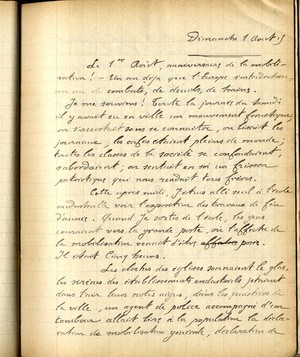 Dimanche 1 Aout 15
Le 1er Août, anniversaire de la mobili-
sation ! - Un an déjà que l'Europe s'entredéchire,
un an de combats, de deuils, de haines.
Je me souviens ! Toute la journée du Samedi
il y avait eu en ville un mouvement frénétique,
on s'accostait sans se connaître, on lisait les
journaux, les cafés étaient pleins de monde ;
toutes les classes de la société se confondaient,
s'abordaient ; on sentait en soi un frisson
patriotique qui nous rendait tous frères.
Cette après midi, j'étais allé seul à l'école
industrielle voir l'exposition des travaux de fin
d'année. Quand je sortis de l'école, les gens
couraient vers la grande porte, où l'affiche de
la mobilisation venait d'être posée.
Il était cinq heures.
Les cloches des églises sonnaient le glas,
les sirènes des établissements industriels jetaient
dans l'air leurs notes aigues, dans les quartiers de
la ville, un agent de police accompagné d'un
tambour allait lire à la population la décla-
ration de mobilisation générale, déclaration de